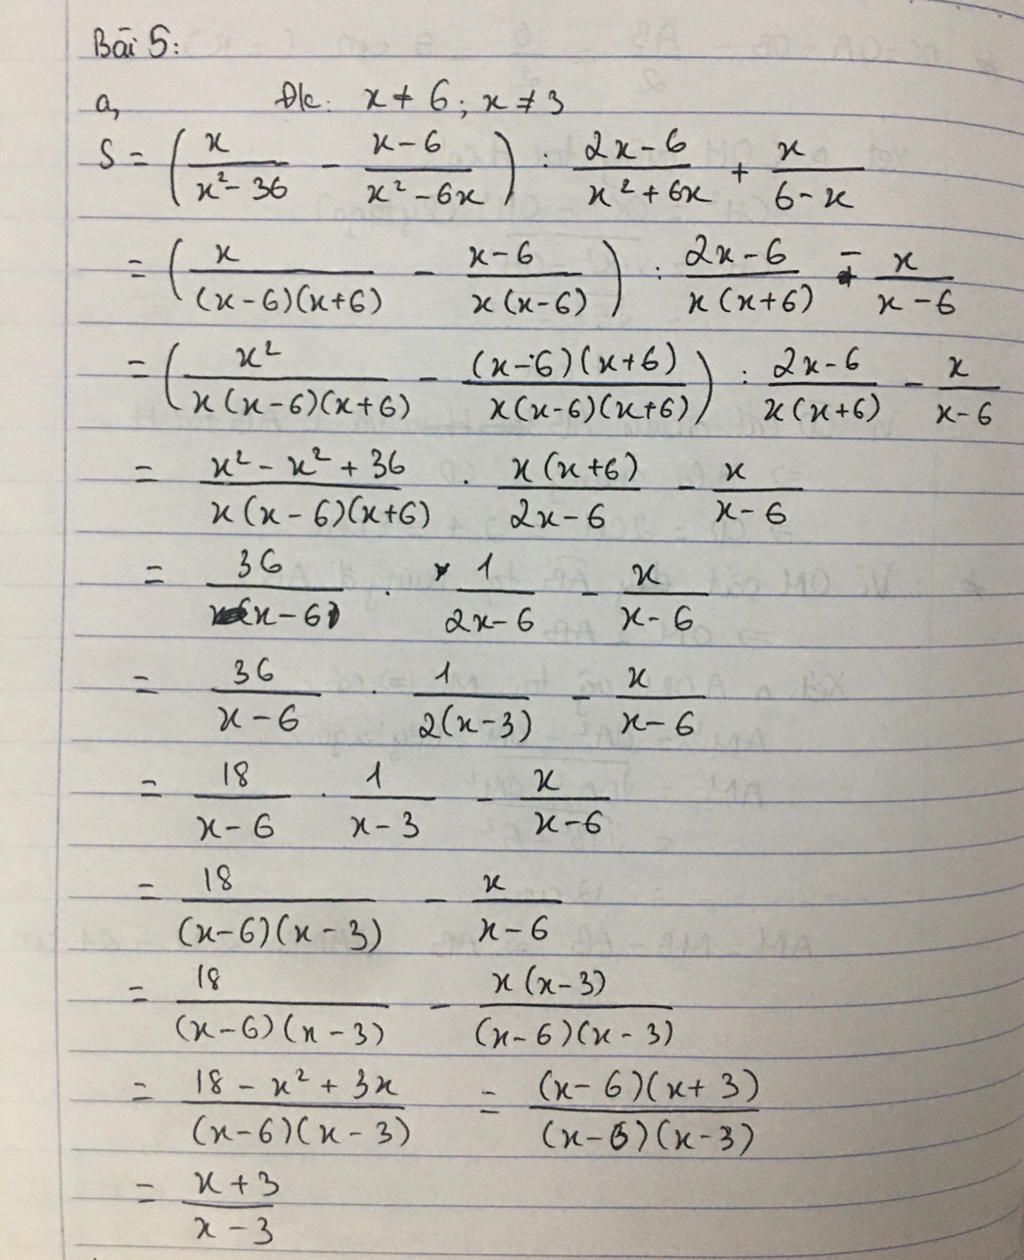 Bài 5:
a, Đk: x ≠ 6; x ≠ 3
S = (x/(x² - 36) - (x - 6)/(x² - 6x)) : (2x - 6)/(x² + 6x) + x/(6 - x)
= (x/((x - 6)(x + 6)) - (x - 6)/(x(x - 6))) : (2x - 6)/(x(x + 6)) - x/(x - 6)
= (x²/(x(x - 6)(x + 6)) - ((x - 6)(x + 6))/(x(x - 6)(x + 6))) : (2x - 6)/(x(x + 6)) - x/(x - 6)
= (x² - x² + 36)/(x(x - 6)(x + 6)) . (x(x + 6))/(2x - 6) - x/(x - 6)
= 36/(x - 6) . 1/(2x - 6) - x/(x - 6)
= 36/(x - 6) . 1/(2(x - 3)) - x/(x - 6)
= 18/(x - 6) . 1/(x - 3) - x/(x - 6)
= 18/((x - 6)(x - 3)) - x/(x - 6)
= 18/((x - 6)(x - 3)) - (x(x - 3))/((x - 6)(x - 3))
= (18 - x² + 3x)/((x - 6)(x - 3)) = ((x - 6)(x + 3))/((x - 6)(x - 3))
= (x + 3)/(x - 3)